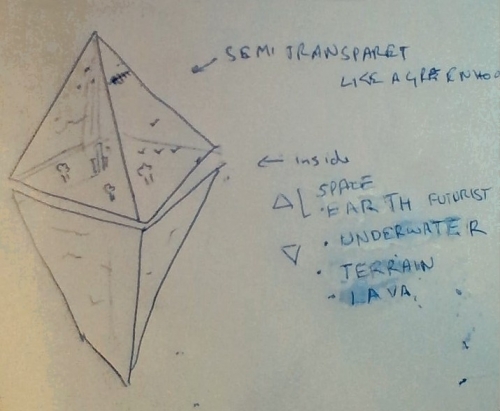 SEMI TRANSPARET
LIKE A GREENHOO
← inside
SPACE
• EARTH FUTURIST
• UNDERWATER
• TERRAIN
• LAVA